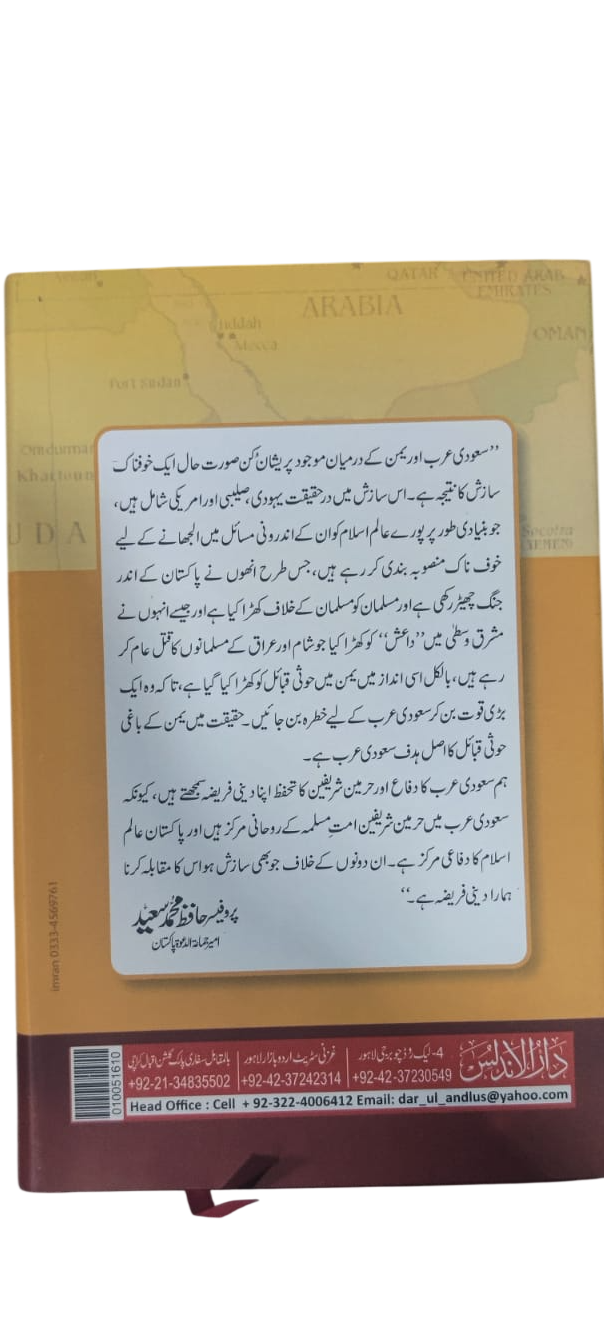 QATAR UNITED ARAB
EMIRATES
ARABIA
OMAN
Jiddah
Mecca
Port Sudan
Omdurman
Khartoum
UDA
Socotra
YEMEN
’’سعودی عرب اور یمن کے درمیان موجود پریشان کُن صورت حال ایک خوفناک
سازش کا نتیجہ ہے۔ اس سازش میں درحقیقت یہودی، صلیبی اور امریکی شامل ہیں،
جو بنیادی طور پر پورے عالم اسلام کو ان کے اندرونی مسائل میں الجھانے کے لیے
خوف ناک منصوبہ بندی کر رہے ہیں، جس طرح انھوں نے پاکستان کے اندر
جنگ چھیڑ رکھی ہے اور مسلمان کو مسلمان کے خلاف کھڑا کیا ہے اور جیسے انہوں نے
مشرق وسطیٰ میں ’’داعش‘‘ کو کھڑا کیا جو شام اور عراق کے مسلمانوں کا قتل عام کر
رہے ہیں، بالکل اسی انداز میں یمن میں حوثی قبائل کو کھڑا کیا گیا ہے، تاکہ وہ ایک
بڑی قوت بن کر سعودی عرب کے لیے خطرہ بن جائیں۔ حقیقت میں یمن کے باغی
حوثی قبائل کا اصل ہدف سعودی عرب ہے۔
ہم سعودی عرب کا دفاع اور حرمین شریفین کا تحفظ اپنا دینی فریضہ سمجھتے ہیں، کیونکہ
سعودی عرب میں حرمین شریفین امتِ مسلمہ کے روحانی مرکز ہیں اور پاکستان عالم
اسلام کا دفاعی مرکز ہے۔ ان دونوں کے خلاف جو بھی سازش ہو اس کا مقابلہ کرنا
ہمارا دینی فریضہ ہے۔‘‘
پروفیسر حافظ محمد سعید
امیر جماعۃ الدعوۃ پاکستان
imran 0333-4569761
دارالاندلس
4- لیک روڈ چوبرجی لاہور
+92-42-37230549
غزنی سٹریٹ اردو بازار لاہور
+92-42-37242314
بالمقابل سفاری پارک گلشن اقبال کراچی
+92-21-34835502
010051610
Head Office : Cell + 92-322-4006412 Email: dar_ul_andlus@yahoo.com